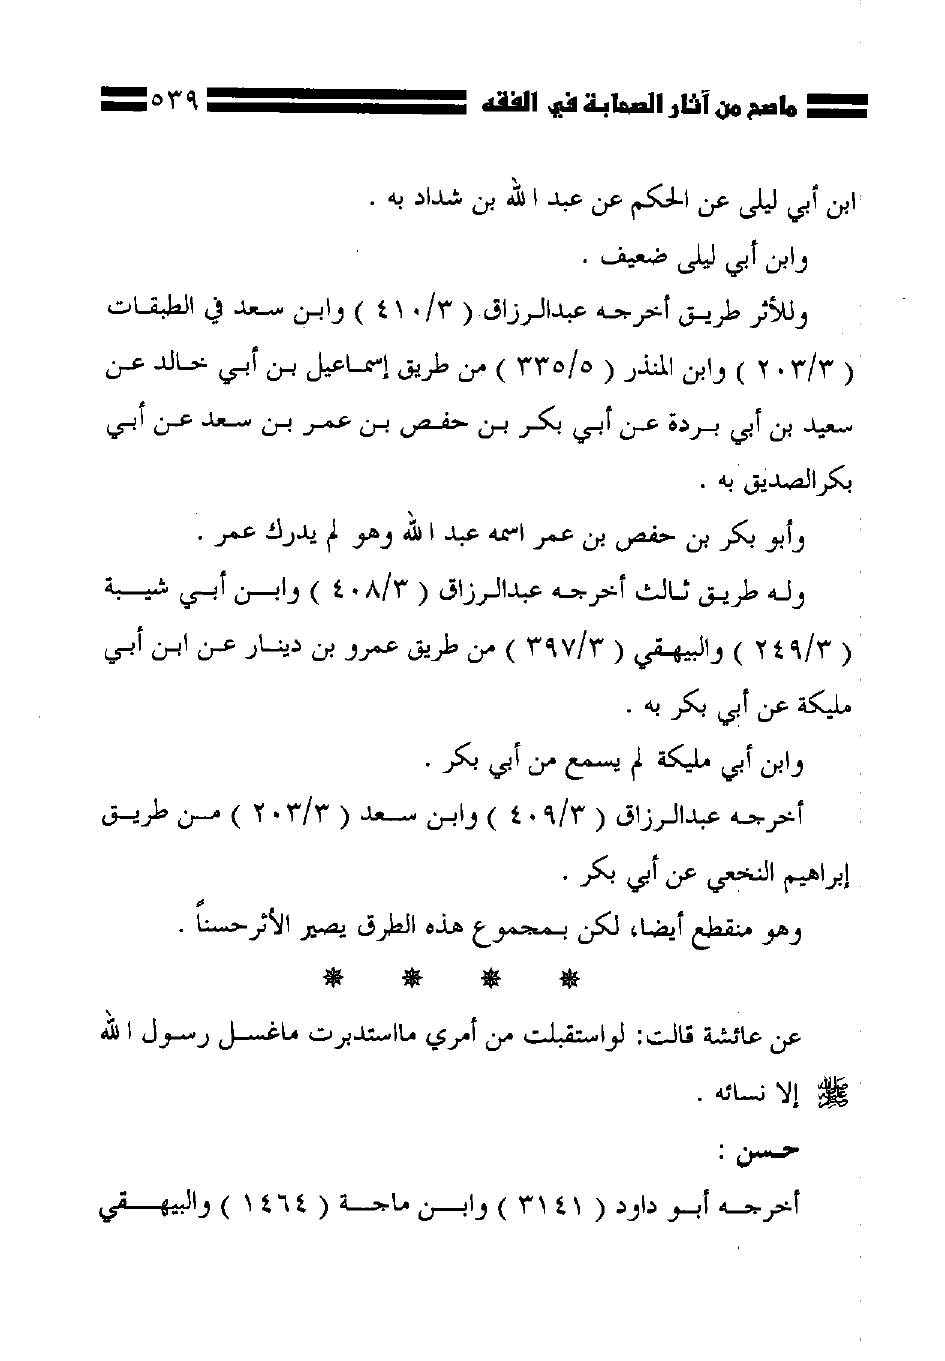 ماصح من آثار الصحابة في الفقه ٥٣٩
ابن أبي ليلى عن الحكم عن عبد الله بن شداد به .
وابن أبي ليلى ضعيف .
وللأثر طريق أخرجه عبدالرزاق ( ٤١٠/٣ ) وابن سعد في الطبقات
( ٢٠٣/٣ ) وابن المنذر ( ٣٣٥/٥ ) من طريق إسماعيل بن أبي خالد عن
سعيد بن أبي بردة عن أبي بكر بن حفص بن عمر بن سعد عن أبي
بكرالصديق به .
وأبو بكر بن حفص بن عمر اسمه عبد الله وهو لم يدرك عمر .
وله طريق ثالث أخرجه عبدالرزاق ( ٤٠٨/٣ ) وابن أبي شيبة
( ٢٤٩/٣ ) والبيهقي ( ٣٩٧/٣ ) من طريق عمرو بن دينار عن ابن أبي
مليكة عن أبي بكر به .
وابن أبي مليكة لم يسمع من أبي بكر .
أخرجه عبدالرزاق ( ٤٠٩/٣ ) وابن سعد ( ٢٠٣/٣ ) من طريق
إبراهيم النخعي عن أبي بكر .
وهو منقطع أيضاء لكن بمجموع هذه الطرق يصير الأثرحسناً .
عن عائشة قالت: لواستقبلت من أمري مااستدبرت ماغسل رسول الله
ﷺ إلا نسائه .
حسن :
أخرجه أبو داود ( ٣١٤١ ) وابن ماجة ( ١٤٦٤ ) والبيهقي